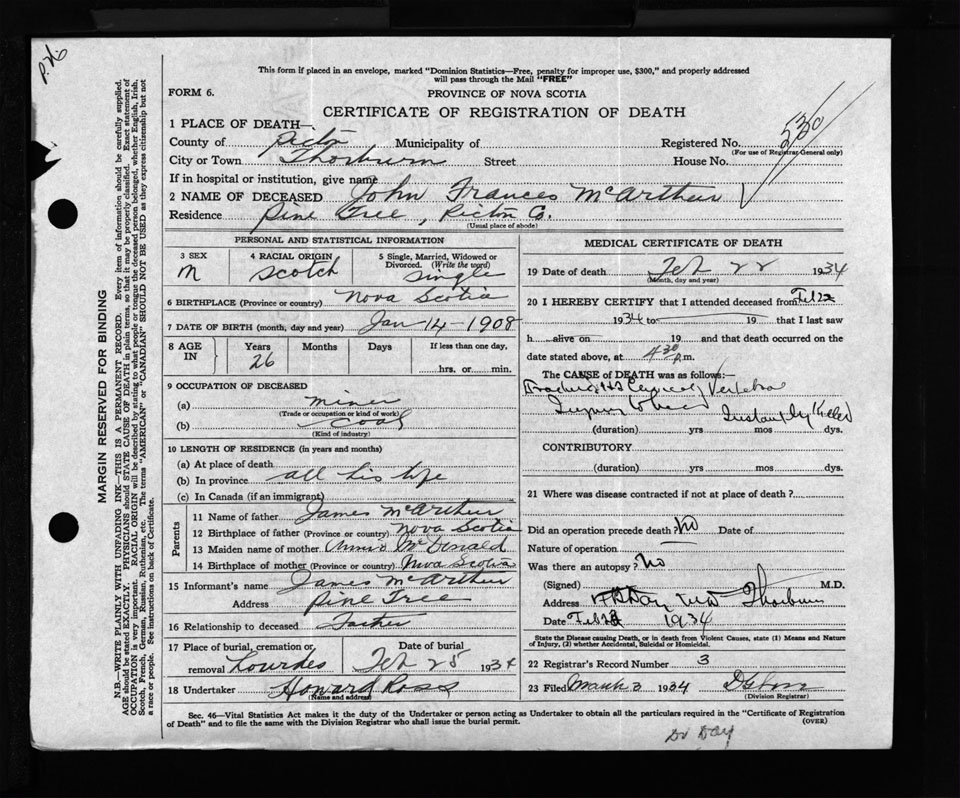 P.26
This form if placed in an envelope, marked "Dominion Statistics—Free, penalty for improper use, $300," and properly addressed
will pass through the Mail "FREE"
FORM 6. PROVINCE OF NOVA SCOTIA
CERTIFICATE OF REGISTRATION OF DEATH
1 PLACE OF DEATH—
County of Municipality of Registered No. 530
(For use of Registrar General only)
City or Town Thorburn Street House No.
If in hospital or institution, give name
2 NAME OF DECEASED John Frances McArthur
Residence Pine Tree, Pictou Co.
(Usual place of abode)
PERSONAL AND STATISTICAL INFORMATION
3 SEX M
4 RACIAL ORIGIN Scotch
5 Single, Married, Widowed or Divorced. (Write the word) Single
6 BIRTHPLACE (Province or country) Nova Scotia
7 DATE OF BIRTH (month, day and year) Jan 14-1908
8 AGE IN Years 26 Months Days If less than one day, hrs. or min.
9 OCCUPATION OF DECEASED
(a) miner
(Trade or occupation or kind of work)
(b) coal
(Kind of industry)
10 LENGTH OF RESIDENCE (in years and months)
(a) At place of death
(b) In province all his life
(c) In Canada (if an immigrant)
Parents
11 Name of father James McArthur
12 Birthplace of father (Province or country) Nova Scotia
13 Maiden name of mother McDonald
14 Birthplace of mother (Province or country) Nova Scotia
15 Informant's name James McArthur
Address Pine Tree
16 Relationship to deceased Father
17 Place of burial, cremation or removal Lourdes Feb 25 1934
18 Undertaker Howard Ross
(Name and address)
MEDICAL CERTIFICATE OF DEATH
19 Date of death Feb 22 1934
(Month, day and year)
20 I HEREBY CERTIFY that I attended deceased from Feb 22
1934 to 19 that I last saw
h alive on 19 and that death occurred on the
date stated above, at 4.30 p.m.
The CAUSE of DEATH was as follows:—
Cervical Vertebrae
Instantly Killed
(duration) yrs mos dys.
CONTRIBUTORY
(duration) yrs mos dys.
21 Where was disease contracted if not at place of death?
Did an operation precede death? No Date of
Nature of operation
Was there an autopsy? No
(Signed) M.D.
Address Thorburn
Date 1934
State the Disease causing Death, or in death from Violent Causes, state (1) Means and Nature
of Injury, (2) whether Accidental, Suicidal or Homicidal.
22 Registrar's Record Number 3
23 Filed March 3 1934
(Division Registrar)
Sec. 46—Vital Statistics Act makes it the duty of the Undertaker or person acting as Undertaker to obtain all the particulars required in the "Certificate of Registration
of Death" and to file the same with the Division Registrar who shall issue the burial permit. (OVER)
Dr Day
MARGIN RESERVED FOR BINDING
N.B.—WRITE PLAINLY WITH UNFADING INK—THIS IS A PERMANENT RECORD. Every item of information should be carefully supplied.
AGE should be stated EXACTLY. PHYSICIANS should STATE CAUSE OF DEATH in plain terms, so that it may be properly classified. Exact statement of
OCCUPATION is very important. RACIAL ORIGIN will be described by stating to what people or tongue the deceased person belonged, whether English, Irish,
Scotch, French, German, Russian, Ruthenian, etc. The terms "AMERICAN" or "CANADIAN" SHOULD NOT BE USED as they express citizenship but not
a race or people. See instructions on back of Certificate.